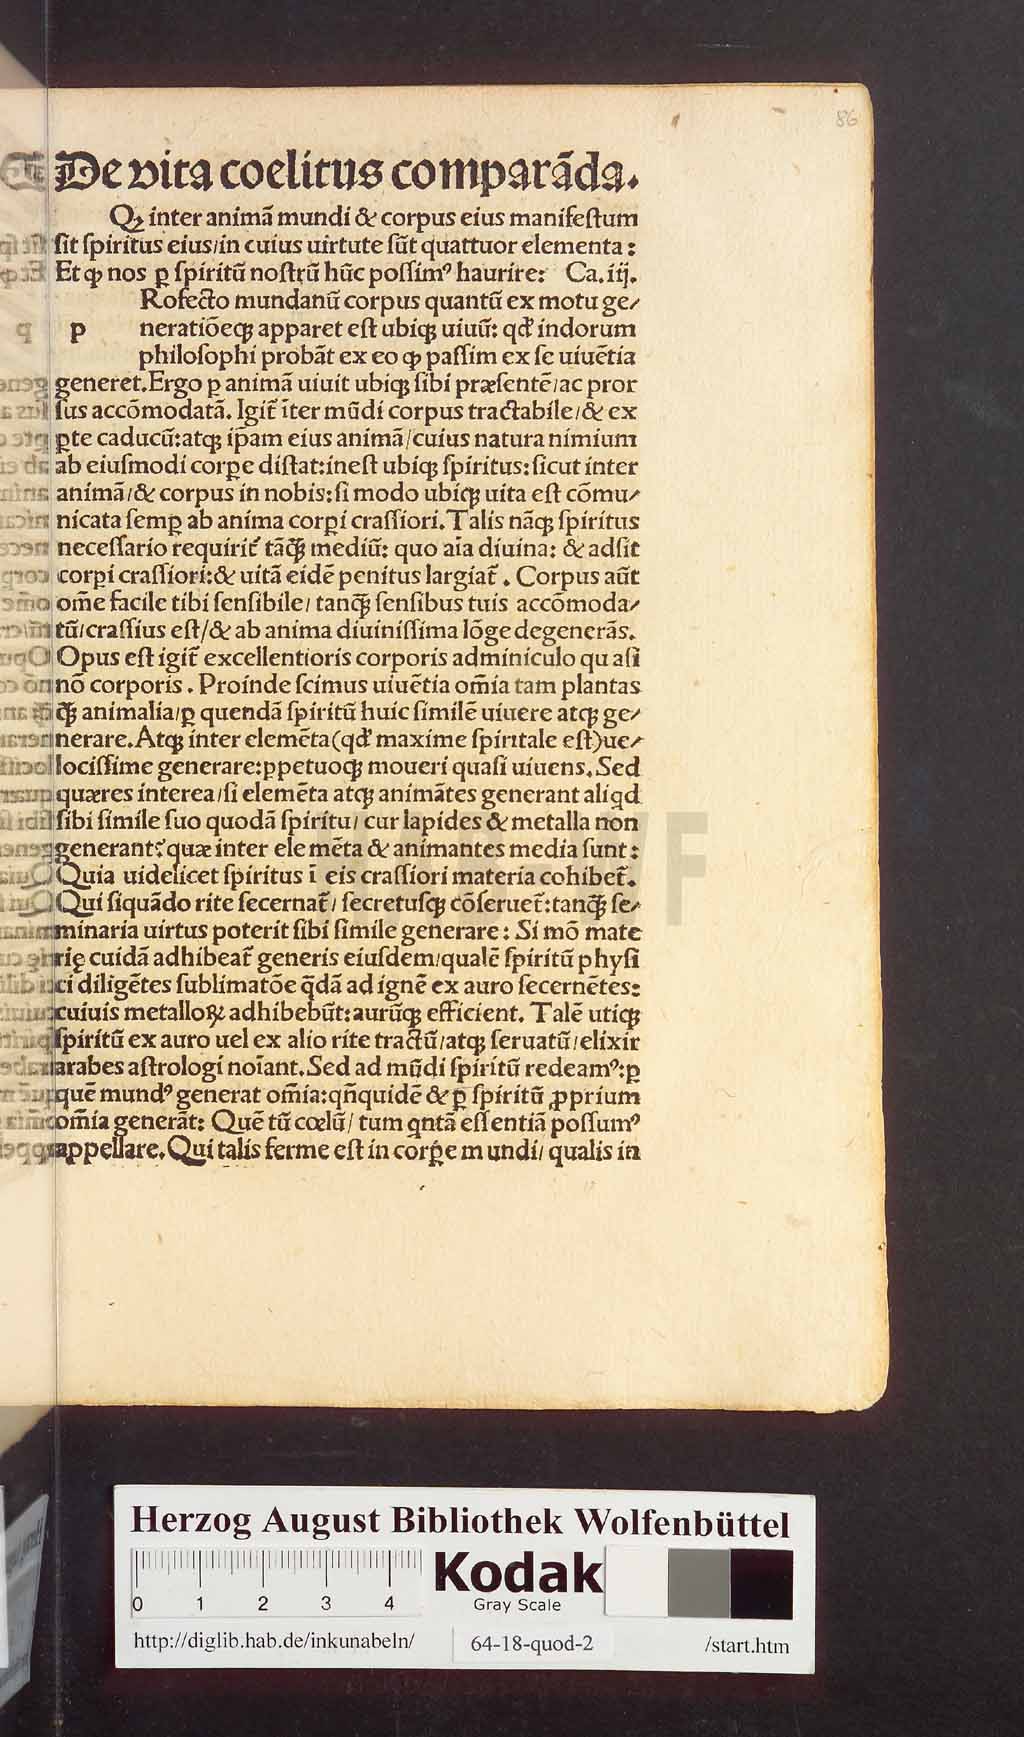 86
De vita coelitus comparāda.
Qꝫ inter animā mundi & corpus eius manifeſtum
ſit ſpiritus eius/in cuius uirtute ſūt quattuor elementa:
Et ꝙ nos ꝑ ſpiritū noſtrū hūc poſſimꝰ haurire: Ca.iij.
Rofecto mundanū corpus quantū ex motu ge/
p neratiōeqꝫ apparet eſt ubiqꝫ uiuū: qđ indorum
philoſophi probāt ex eo ꝙ paſſim ex ſe uiuētia
generet.Ergo ꝑ animā uiuit ubiqꝫ ſibi præſentē/ac pror
ſus accōmodatā. Igit̃ īter mūdi corpus tractabile/& ex
ꝑte caducū:atqꝫ ip̄am eius animā/cuius natura nimium
ab eiuſmodi corꝑe diſtat:ineſt ubiqꝫ ſpiritus:ſicut inter
animā/& corpus in nobis:ſi modo ubiqꝫ uita eſt cōmu/
nicata ſemꝑ ab anima corꝑi craſſiori.Talis nāqꝫ ſpiritus
neceſſario requirit̃ tāꝙ̃ mediū: quo aīa diuina: & adſit
corꝑi craſſiori:& uitā eidē penitus largiat̃. Corpus aūt
om̄e facile tibi ſenſibile/ tanꝙ̃ ſenſibus tuis accōmoda/
tū/craſſius eſt/& ab anima diuiniſſima lōge degenerās.
Opus eſt igit̃ excellentioris corporis adminiculo qu aſi
nō corporis. Proinde ſcimus uiuētia om̄ia tam plantas
ꝙ̃ animalia/ꝑ quendā ſpiritū huic ſimilē uiuere atqꝫ ge/
nerare.Atqꝫ inter elemēta(qđ maxime ſpiritale eſt)ue/
lociſſime generare:ꝑpetuoqꝫ moueri quaſi uiuens.Sed
quæres interea/ſi elemēta atqꝫ animātes generant aliqd
ſibi ſimile ſuo quodā ſpiritu/ cur lapides & metalla non
generant:quæ inter ele mēta & animantes media ſunt:
Quia uidelicet ſpiritus ī eis craſſiori materia cohibet̃.
Qui ſiquādo rite ſecernat̃/ ſecretuſqꝫ cōſeruet̃:tanꝙ̃ ſe/
minaria uirtus poterit ſibi ſimile generare: Si mō mate
rię cuidā adhibeat̃ generis eiuſdem/qualē ſpiritū phyſi
ci diligētes ſublimatōe q̄dā ad ignē ex auro ſecernētes:
cuiuis metalloꝝ adhibebūt:aurūqꝫ efficient. Talē utiqꝫ
ſpiritū ex auro uel ex alio rite tractū/atqꝫ ſeruatū/elixir
arabes aſtrologi noīant.Sed ad mūdi ſpiritū redeamꝰ:ꝑ
quē mundꝰ generat om̄ia:qn̄quidē & ꝑ ſpiritū ꝓprium
om̄ia generāt: Quē tū cœlū/ tum qntā eſſentiā poſſumꝰ
appellare.Qui talis ferme eſt in corꝑe m undi/ qualis in
Herzog August Bibliothek Wolfenbüttel
0 1 2 3 4
Kodak
Gray Scale
http://diglib.hab.de/inkunabeln/ 64-18-quod-2 /start.htm